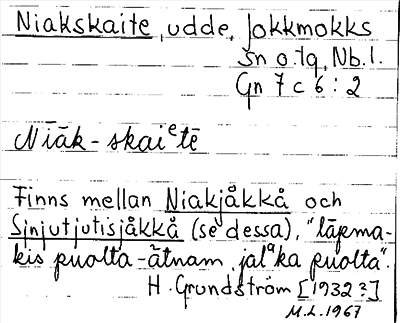 Niakskaite, udde, Jokkmokks
sn o. lg, Nb. l.
Gn 7 c 6 : 2
Niāk-skaiᵉtē
Finns mellan Niakjåkkå och
Sjnjutjutisjåkkå (se dessa), "lāpma-
kis puolta-ātnam, jalᵃka puolta".
H. Grundström [1932?]
M.L. 1967